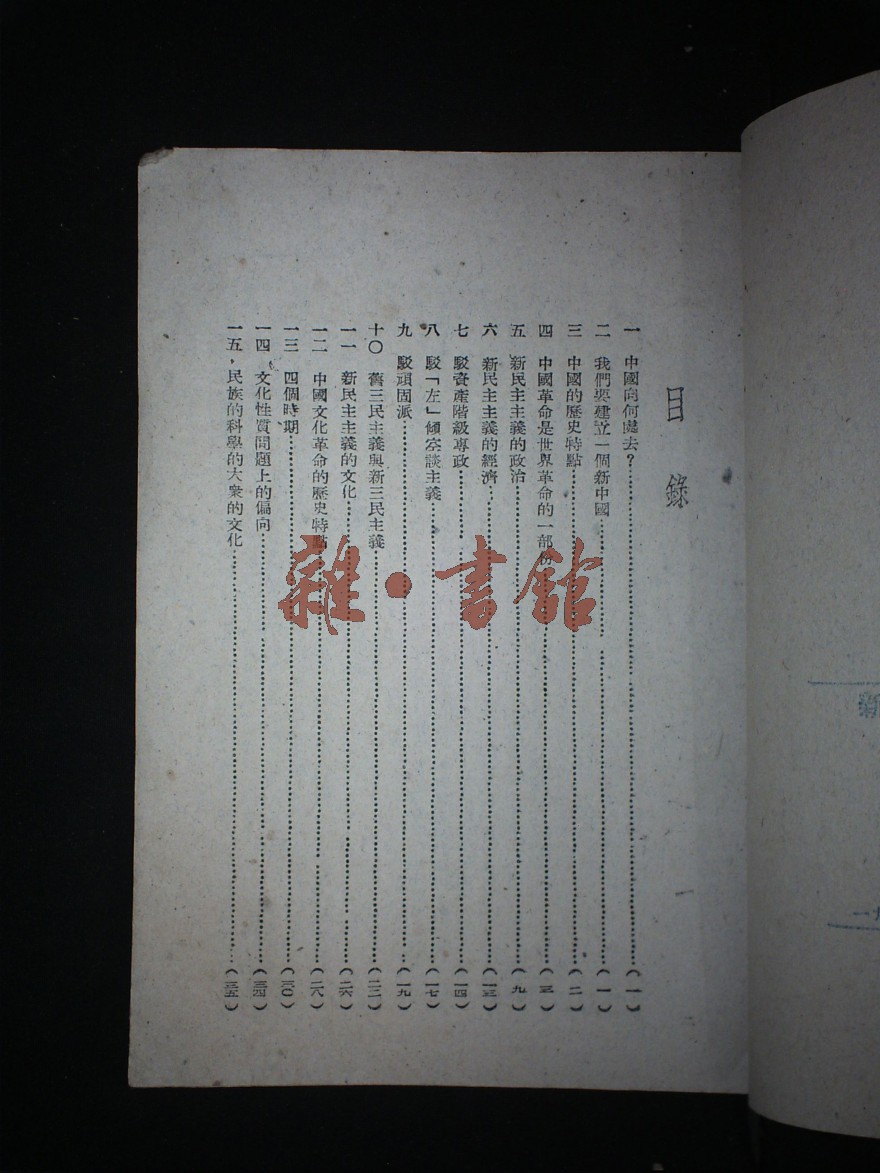 目錄
一 中國向何處去？……（一）
二 我們要建立一個新中國……（一）
三 中國的歷史特點……（二）
四 中國革命是世界革命的一部份……（三）
五 新民主主義的政治……（九）
六 新民主主義的經濟……（一三）
七 駁資產階級專政……（一四）
八 駁「左」傾空談主義……（一七）
九 駁頑固派……（一九）
十〇 舊三民主義與新三民主義……（二二）
一一 新民主主義的文化……（二六）
一二 中國文化革命的歷史特點……（二八）
一三 四個時期……（三〇）
一四 文化性質問題上的偏向……（三四）
一五，民族的科學的大衆的文化……（三五）
雜·書館